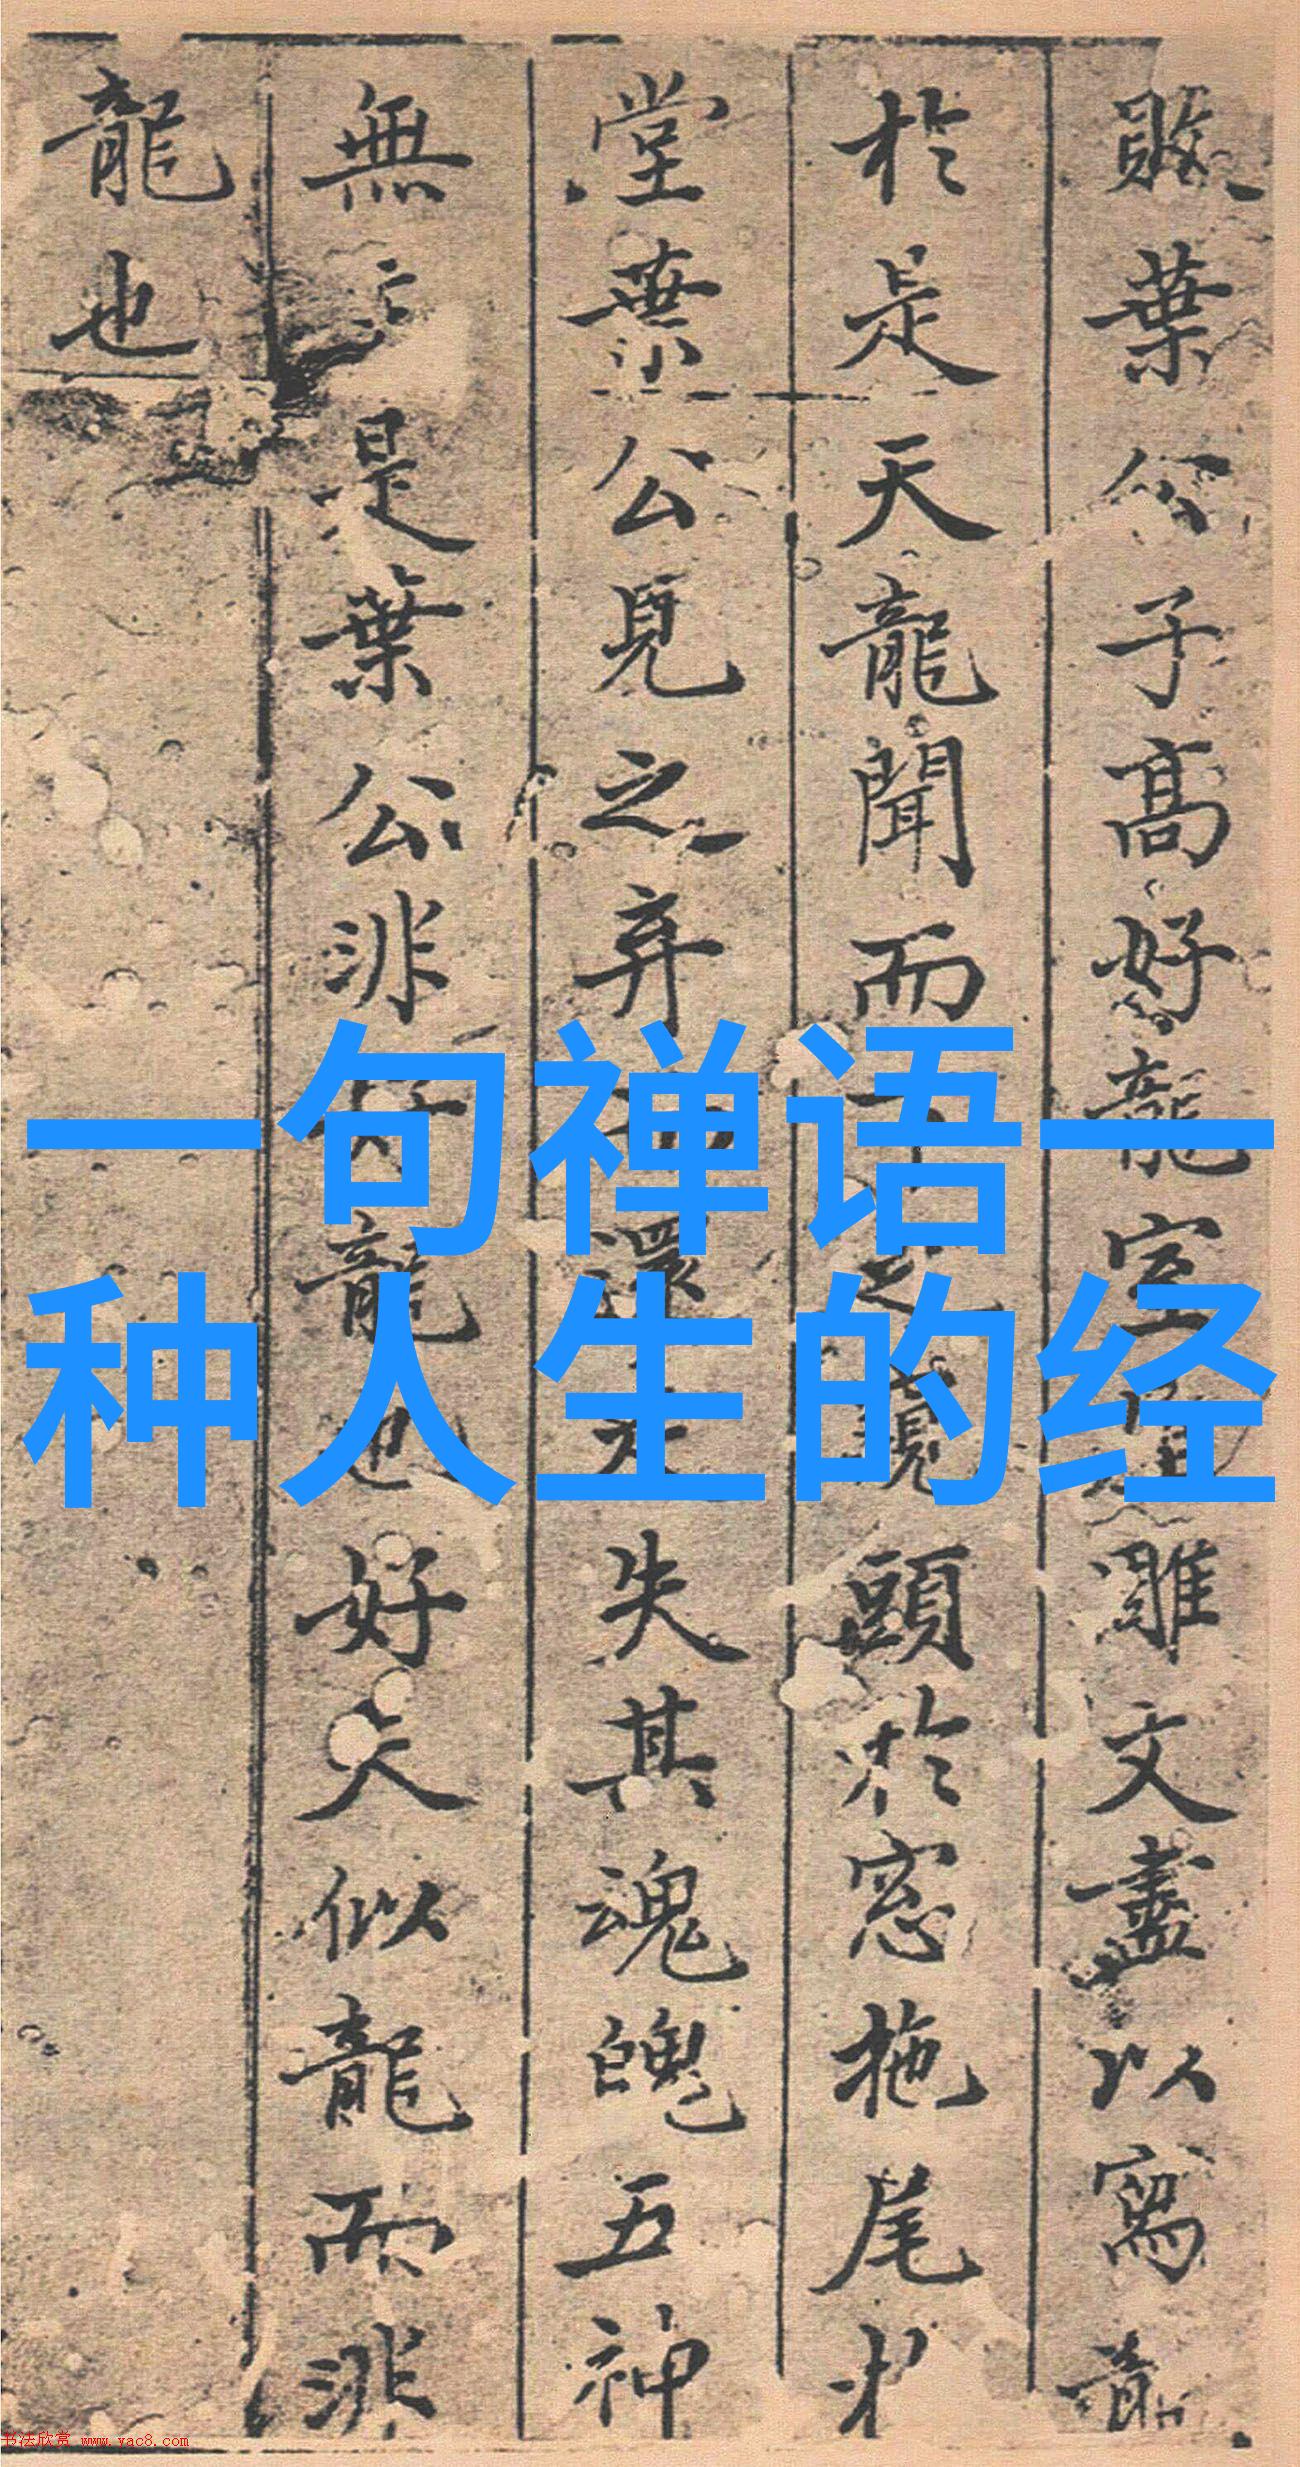 敗葉公子高好龍室
雕文盡以寫龍
於是天龍聞而
頭於窓拖尾於
堂葉公見之弃
還走失其魂魄五神
無主是葉公非好龍也好夫似龍而非
龍也
一句禅语一
种人生的经
书法欣赏 www.yac8.com